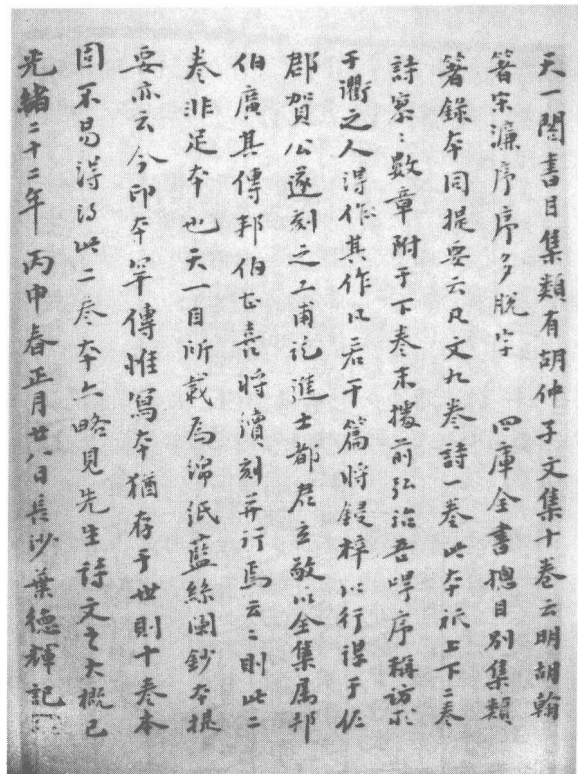 天一閣書目集類有胡仲子文集十卷云明胡翰
著宋濂序序多脫字　四庫全書總目別集類
著錄本同提要云凡文九卷詩一卷此本祇上下二卷
詩寥：數章附于下卷末據前弘治吾㖊序稱訪求
于衢之人得作其作凡若干篇將鋟梓以行得于佐
郡賀公遂刻之工甫訖進士都君玄敬以全集属邦
伯廣其傳邦伯甚喜將續刻并行焉云：則此二
卷非足本也天一目所載為綿紙藍絲闌鈔本提
要亦云今印本罕傳惟寫本猶存于世則十卷本
固不易得得此二卷本亦略見先生詩文之大概已
光緒二十二年丙申春正月廿八日長沙葉德輝記